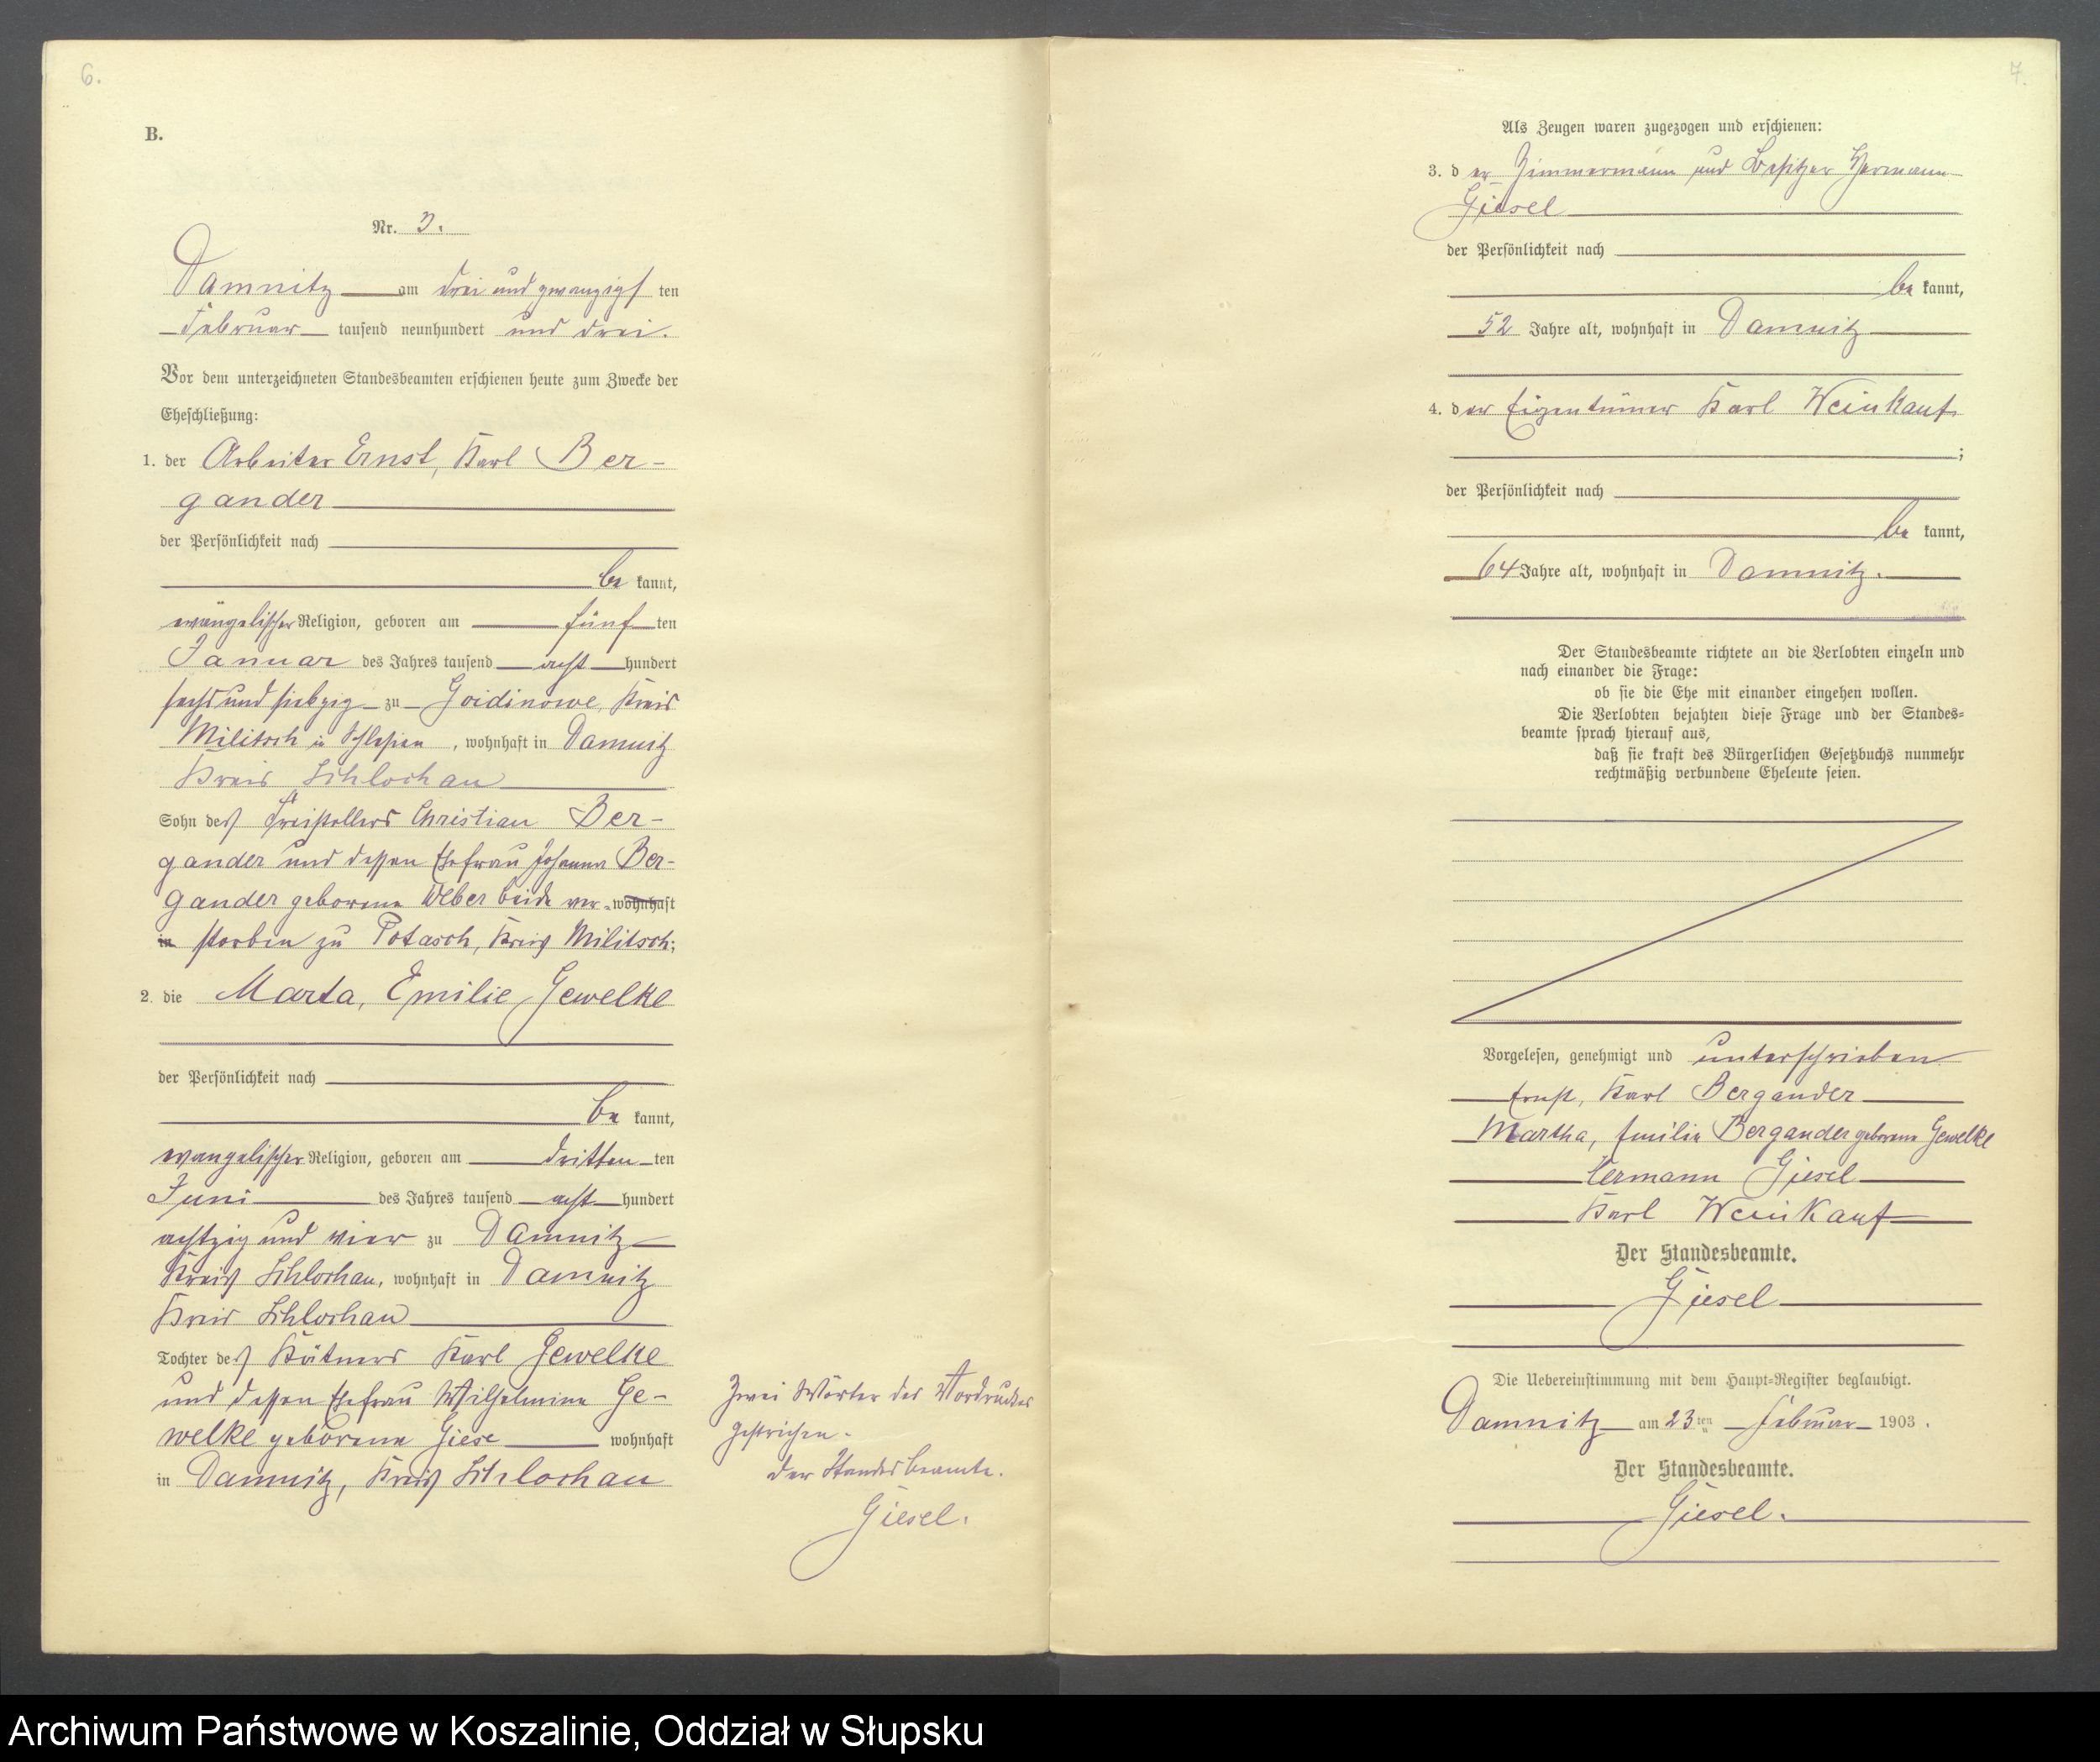 6.
B.
Nr. 3.
Damnitz am drei und zwanzigsten
Februar tausend neunhundert und drei.
Vor dem unterzeichneten Standesbeamten erschienen heute zum Zwecke der
Eheschließung:
1. der Arbeiter Ernst, Karl Ber-
gander
der Persönlichkeit nach
be kannt,
evangelischer Religion, geboren am fünf ten
Januar des Jahres tausend acht hundert
sechs und siebzig zu Goidinowe, Kreis
Militsch in Schlesien, wohnhaft in Damnitz
Kreis Schlochau
Sohn des Freistellers Christian Ber-
gander und dessen Ehefrau Johanna Ber-
gander geborene Weber beide ver- wohnhaft
in storben zu Potasch, Kreis Militsch;
2. die Marta, Emilie Gewelke
der Persönlichkeit nach
be kannt,
evangelischer Religion, geboren am dritten ten
Juni des Jahres tausend acht hundert
achtzig und vier zu Damnitz
Kreis Schlochau, wohnhaft in Damnitz
Kreis Schlochau
Tochter des Kätners Karl Gewelke
und dessen Ehefrau Wilhelmine Ge-
welke geborene Giese wohnhaft
in Damnitz, Kreis Schlochau
Zwei Wörter des Vordruckes
gestrichen.
Der Standesbeamte.
Giesel.
7.
Als Zeugen waren zugezogen und erschienen:
3. der Zimmermann und Besitzer Hermann
Giesel
der Persönlichkeit nach
be kannt,
52 Jahre alt, wohnhaft in Damnitz
4. der Eigentümer Karl Weinkauf
;
der Persönlichkeit nach
be kannt,
64 Jahre alt, wohnhaft in Damnitz.
Der Standesbeamte richtete an die Verlobten einzeln und
nach einander die Frage:
ob sie die Ehe mit einander eingehen wollen.
Die Verlobten bejahten diese Frage und der Standes-
beamte sprach hierauf aus,
daß sie kraft des Bürgerlichen Gesetzbuchs nunmehr
rechtmäßig verbundene Eheleute seien.
Vorgelesen, genehmigt und unterschrieben
Ernst, Karl Bergander
Martha, Emilie Bergander geborene Gewelke
Hermann Giesel
Karl Weinkauf
Der Standesbeamte.
Giesel
Die Uebereinstimmung mit dem Haupt-Register beglaubigt.
Damnitz am 23ten Februar 1903.
Der Standesbeamte.
Giesel.
Archiwum Państwowe w Koszalinie, Oddział w Słupsku